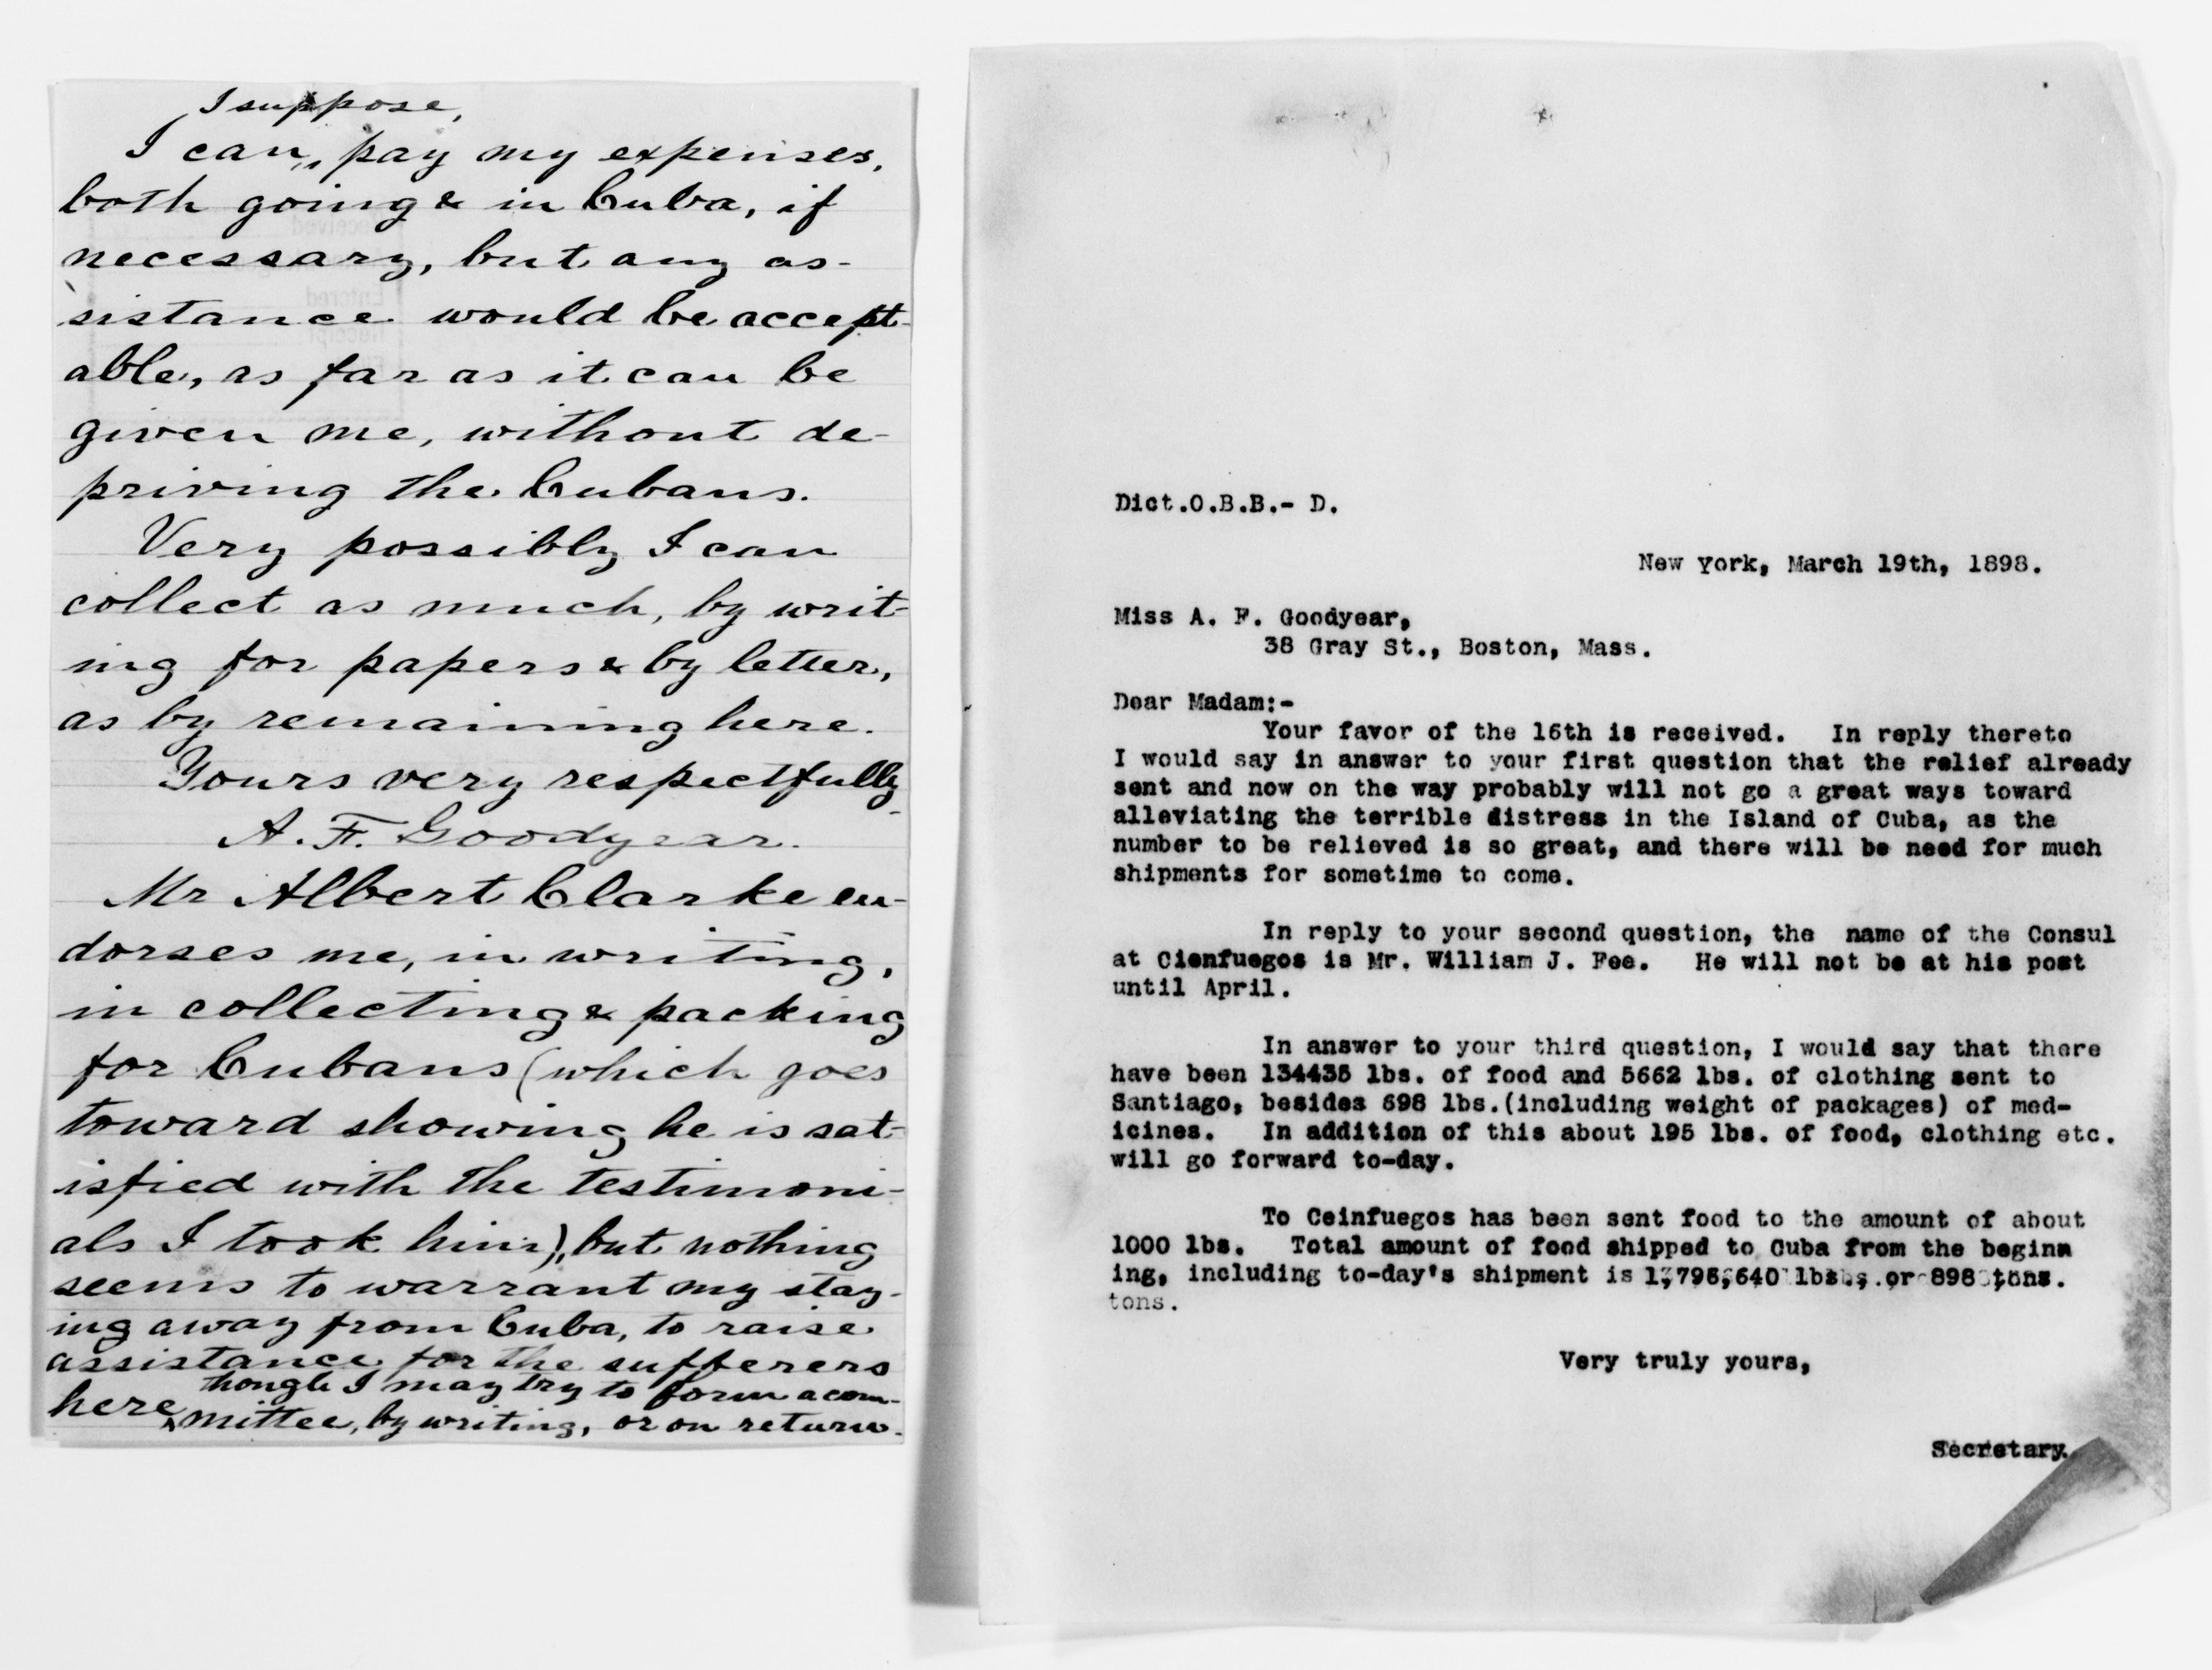 I suppose,
I can, pay my expenses,
both going & in Cuba, if
necessary, but any as-
sistance would be accept-
able, as far as it can be
given me, without de-
priving the Cubans.
Very possibly I can
collect as much, by writ-
ing for papers & by letter,
as by remaining here.
Yours very respectfully
A. F. Goodyear.
Mr Albert Clarke en-
dorses me, in writing,
in collecting & packing
for Cubans (which goes
toward showing he is sat-
isfied with the testimoni-
als I took him), but nothing
seems to warrant my stay-
ing away from Cuba, to raise
assistance for the sufferers
here though I may try to form a com-
mittee, by writing, or on return.
Dict.O.B.B.- D.
New York, March 19th, 1898.
Miss A. F. Goodyear,
38 Gray St., Boston, Mass.
Dear Madam:-
Your favor of the 16th is received. In reply thereto
I would say in answer to your first question that the relief already
sent and now on the way probably will not go a great ways toward
alleviating the terrible distress in the Island of Cuba, as the
number to be relieved is so great, and there will be need for much
shipments for sometime to come.
In reply to your second question, the name of the Consul
at Cienfuegos is Mr. William J. Fee. He will not be at his post
until April.
In answer to your third question, I would say that there
have been 134435 lbs. of food and 5662 lbs. of clothing sent to
Santiago, besides 698 lbs.(including weight of packages) of med-
icines. In addition of this about 195 lbs. of food, clothing etc.
will go forward to-day.
To Ceinfuegos has been sent food to the amount of about
1000 lbs. Total amount of food shipped to Cuba from the beginn
ing, including to-day's shipment is lbs. or 898 tons.
tons.
Very truly yours,
Secretary.